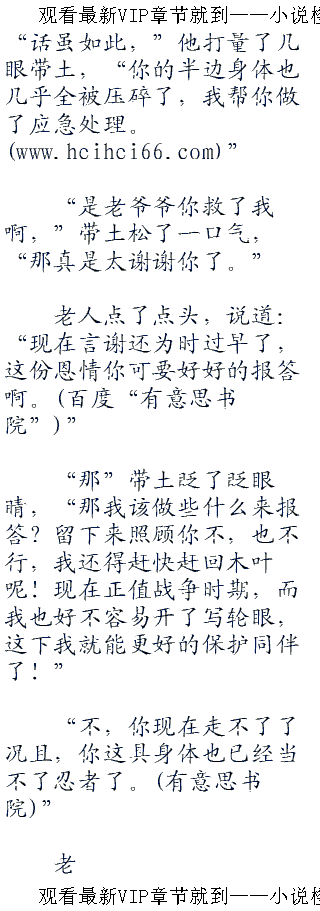 观看最新VIP章节就到——小说检
“话虽如此，”他打量了几
眼带土，“你的半边身体也
几乎全被压碎了，我帮你做
了应急处理。
(www.hcihci66.com)”
“是老爷爷你救了我
啊，”带土松了一口气，
“那真是太谢谢你了。”
老人点了点头，说道：
“现在言谢还为时过早了，
这份恩情你可要好好的报答
啊。(百度“有意思书
院”)”
“那”带土眨了眨眼
睛，“那我该做些什么来报
答？留下来照顾你不，也不
行，我还得赶快赶回木叶
呢！现在正值战争时期，而
我也好不容易开了写轮眼，
这下我就能更好的保护同伴
了！”
“不，你现在走不了了
况且，你这具身体也已经当
不了忍者了。(有意思书
院)”
老
观看最新VIP章节就到——小说检